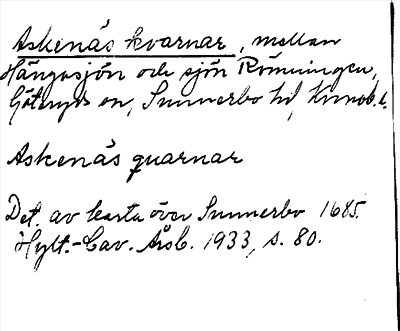 Askenäs kvarnar, mellan
Hängasjön och sjön Römningen,
Göteryds sn, Sunnerbo hd, Kronob. l.
Askenäs quarnar
Det. av karta över Sunnerbo 1685.
Hylt.-Cav. Årsb. 1933, s. 80.